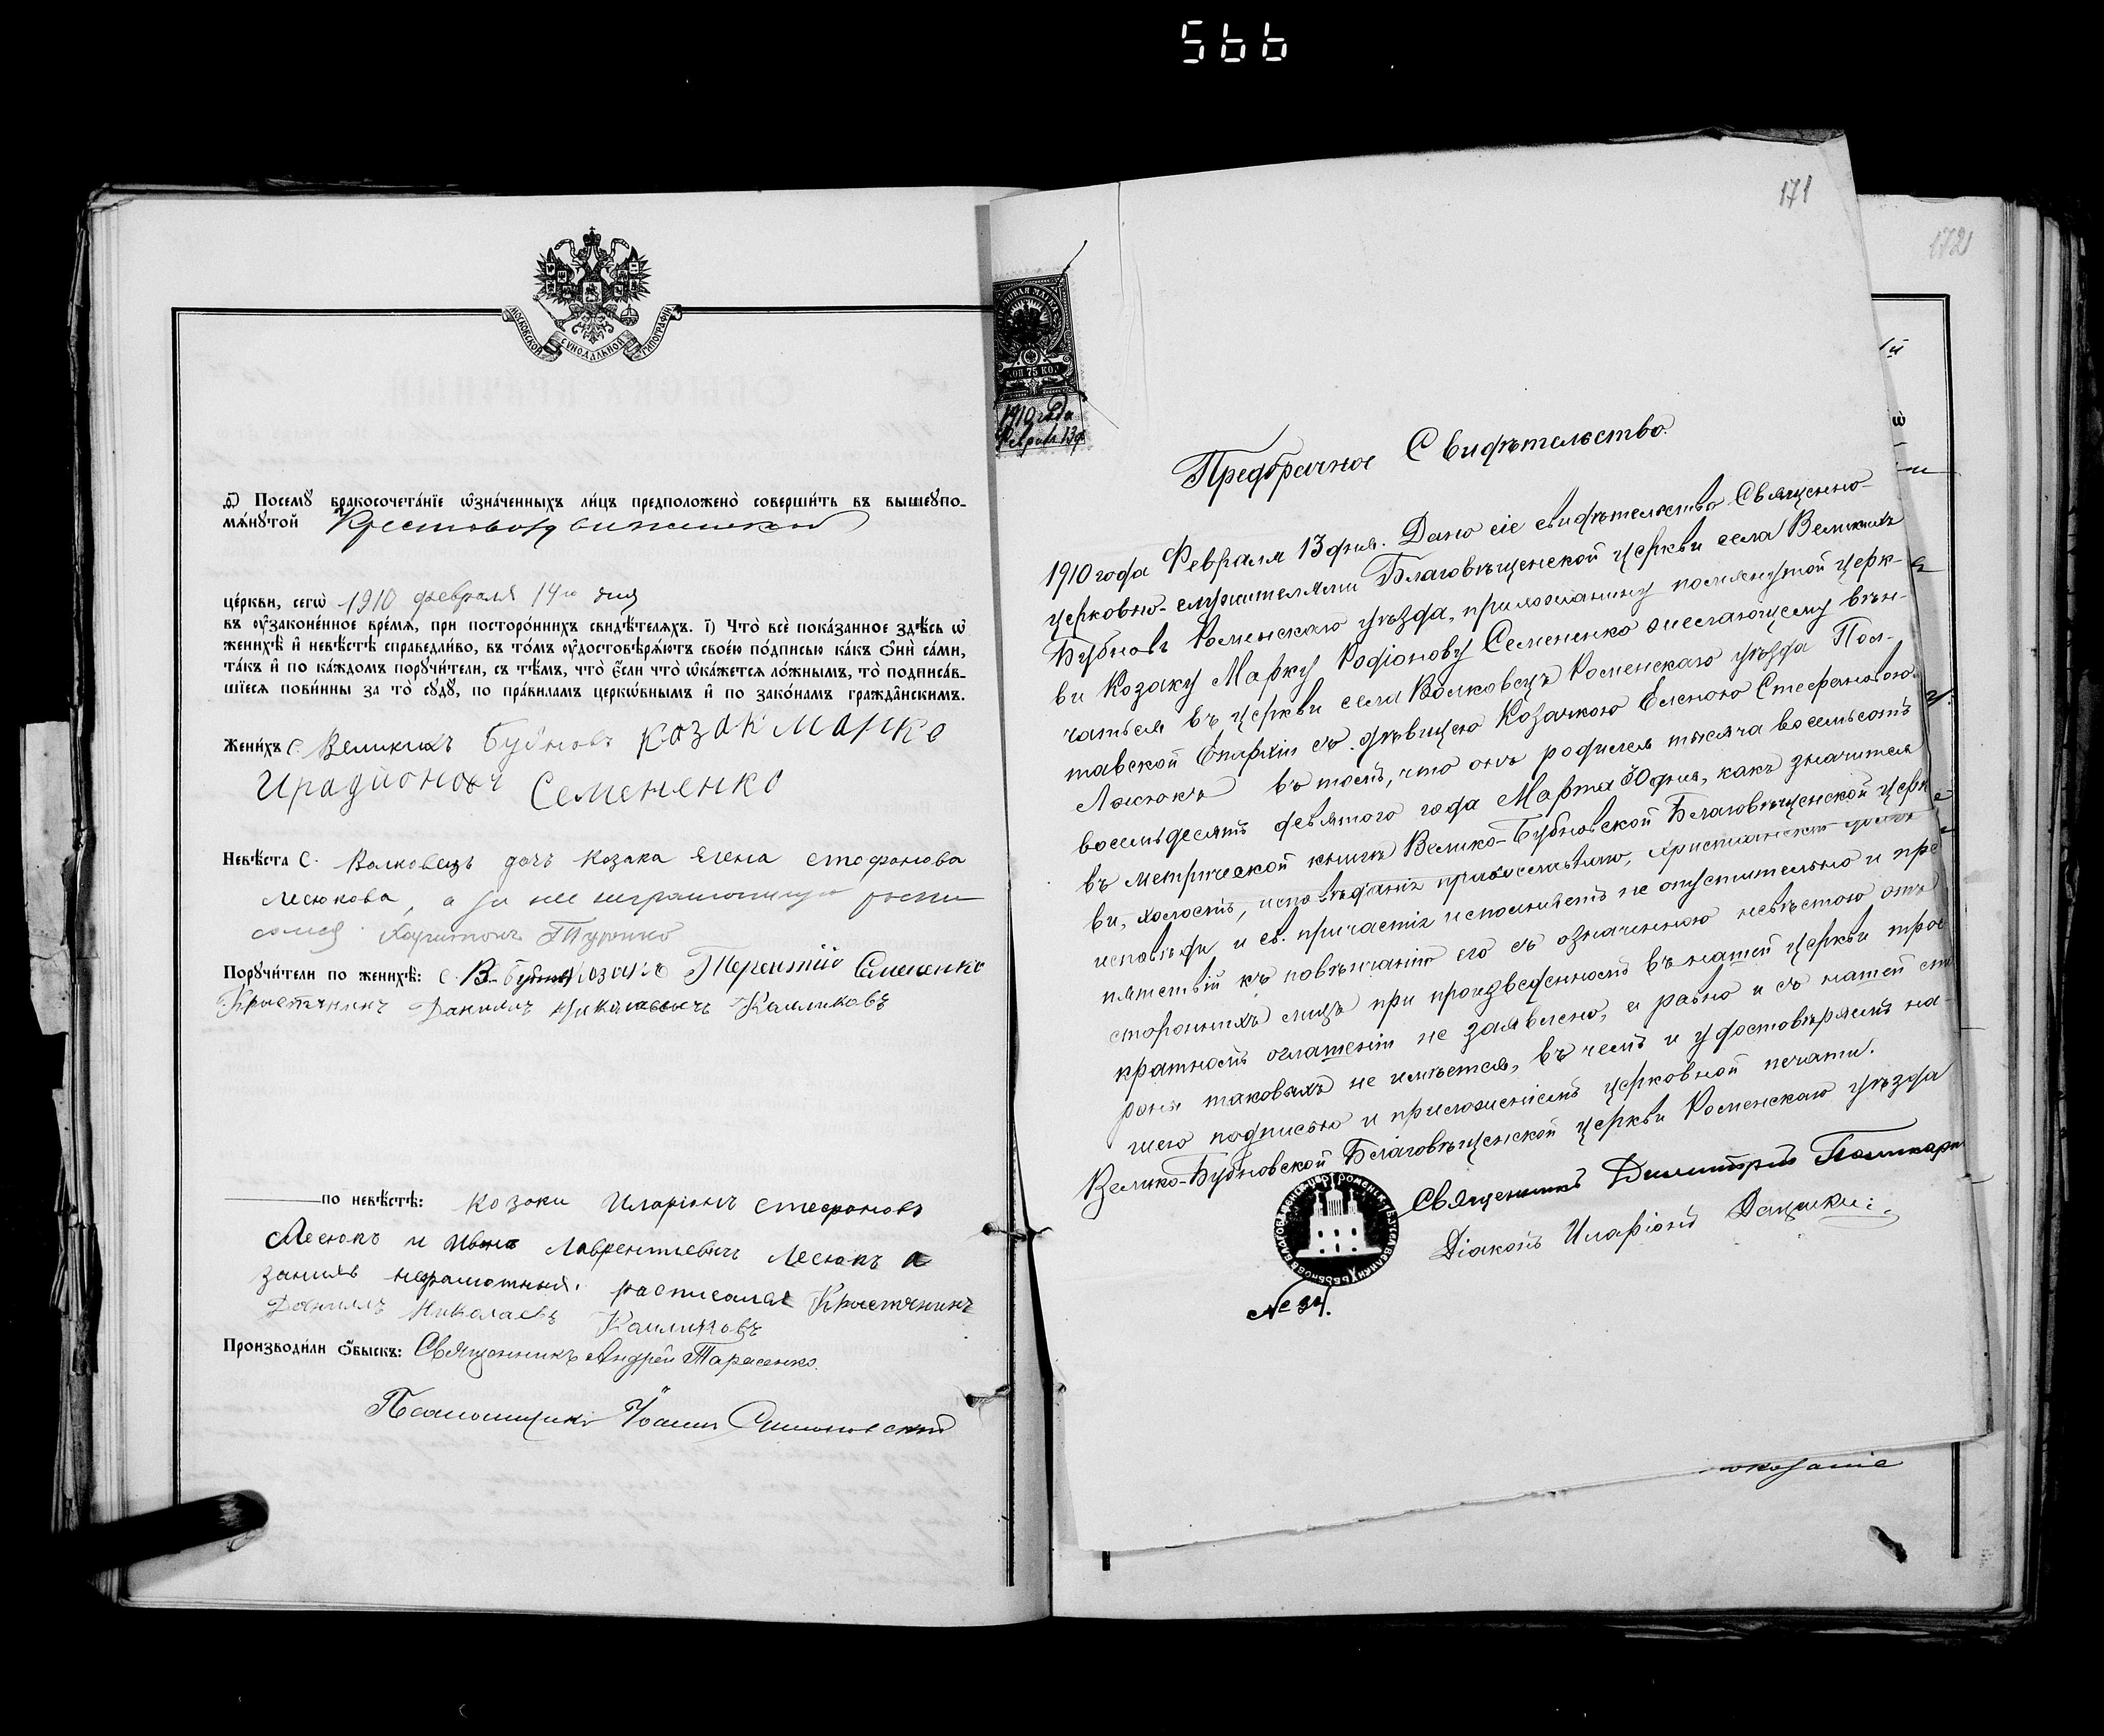 566
171
172
МОСКОВСКОЙ СУНОДАЛЬНОЙ ТИПОГРАФІИ
Посемꙋ̀ бракосочета́нїе ѡ҆зна́ченныхъ ли́цъ предположено̀ соверши́ть въ вышеꙋпо-
мѧ́нꙋтой Крестовоздвиженской
це́ркви, сегѡ̀ 1910 февраля 14го дня
въ ᲂу҆зако́ненное вре́мѧ, при посторо́ннихъ свидѣ́телѧхъ. і҃) Что̀ всѐ пока́занное здѣ́сь ѡ҆
женихѣ̀ и҆ невѣ́стѣ справедли́во, въ то́мъ ᲂу҆достовѣрѧ́ютъ свое́ю по́дписью ка́къ ѻ҆нѝ са́ми,
та́къ и҆ по ка́ждомъ порꙋчи́тели, съ тѣ́мъ, что̀ є҆́сли что̀ ѡ҆ка́жетсѧ ло́жнымъ, то̀ подписа́в-
шїесѧ пови́нны за то̀ сꙋдꙋ̀, по пра́виламъ церкѡ́внымъ и҆ по зако́намъ гражда̑нскимъ.
Жени́хъ с. Великихъ Бубновъ козак Марко
Ирадионовъ Семененко
Невѣ́ста С. Волковецъ дочь козака Елена стефанова
Лесюкова, а за нее неграмотную роспи
сался Харитонъ
Порꙋчи́тели по женихѣ̀: с. В. козакъ Терентій Семененко
Крестянинъ Данилъ Николаевичъ Калликовъ
по невѣ́стѣ: козаки Иларіонъ стефановъ
Лесюкъ и Иванъ Лаврентиевичъ Лесюкъ а
занихъ неграмотныхъ росписался Крестянинъ
Данилъ Николаевъ Калликовъ
Производи́ли ѻ҆́быскъ: Священникъ Андрей Тарасенко.
Псаломщикъ Іоаннъ
75 КОП
1910 года
Февраля 13 д
Предбрачное Свидѣтельство.
1910 года Февраля 13 дня. Дано сіе свидѣтельство Священно-
церковно-служителями Благовѣщенской церкви села Великихъ
Бубновъ Роменскаго уѣзда, прихожанину помянутой церк-
ви Козаку Марку Родіонову Семененко желающему вѣн-
чаться въ церкви села Волковецъ Роменскаго уѣзда Пол-
тавской Епархіи съ дѣвицею Козачкою Еленою Стефановою
Лесюкъ въ томъ, что онъ родился тысяча восемьсотъ
восемьдесятъ девятого года Марта 30 дня, какъ значится
въ метрической книгѣ Велико-Бубновской Благовѣщенской церк
ви, холостъ, исповѣданія православнаго, христіанскій долгъ
исповѣди и св. причастія исполняетъ не опустительно и пре
пятствій къ повѣнчанію его съ означенною невѣстою отъ
стороннихъ лицъ при произведенномъ въ нашей церкви трое
кратномъ оглашеніи не заявлено, а равно и съ нашей сто
роны таковыхъ не имѣется, въ чемъ и удостовѣряемъ на-
шего подписью и приложеніемъ церковной печати.
Велико-Бубновской Благовѣщенской церкви Роменскаго уѣзда
Священникъ Димитрій
Діаконъ Иларіонъ
№ 34.